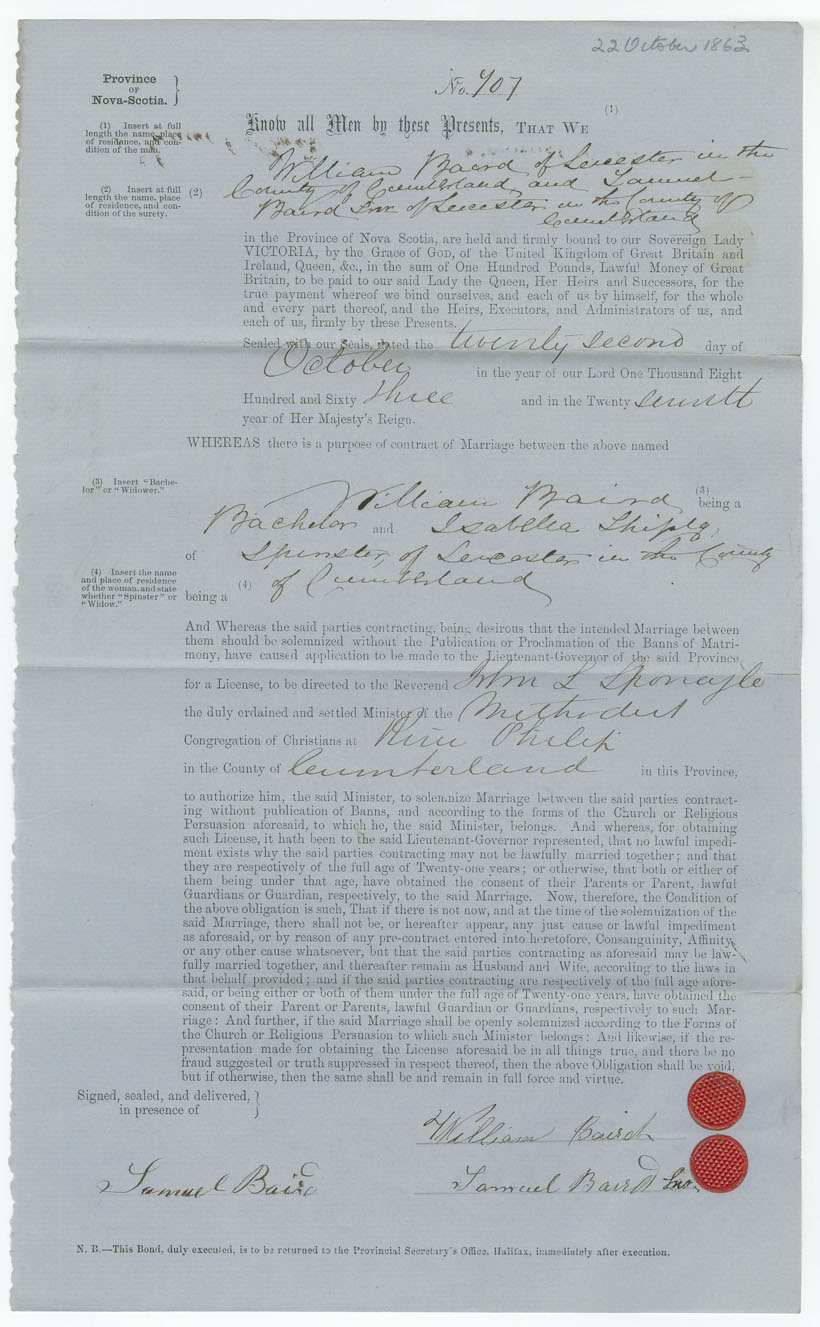 22 October 1863
Province
OF
Nova-Scotia.
No. 707
(1)
Know all Men by these Presents, THAT WE
(1) Insert at full
length the name, place
of residence, and con-
dition of the man.
William Baird of Leicester in the
(2) Insert at full
length the name, place
of residence, and con-
dition of the surety.
(2)
County of Cumberland and Samuel
Baird Snr of Leicester in the County of
Cumberland
in the Province of Nova Scotia, are held and firmly bound to our Sovereign Lady
VICTORIA, by the Grace of GOD, of the United Kingdom of Great Britain and
Ireland, Queen, &c., in the sum of One Hundred Pounds, Lawful Money of Great
Britain, to be paid to our said Lady the Queen, Her Heirs and Successors, for the
true payment whereof we bind ourselves, and each of us by himself, for the whole
and every part thereof, and the Heirs, Executors, and Administrators of us, and
each of us, firmly by these Presents.
Sealed with our Seals, dated the twenty second day of
October in the year of our Lord One Thousand Eight
Hundred and Sixty three and in the Twenty seventh
year of Her Majesty's Reign.
WHEREAS there is a purpose of contract of Marriage between the above named
(3) Insert "Bache-
lor" or "Widower."
William Baird (3) being a
Bachelor and Isabella Shipley,
of Spinster, of Leicester in the County
(4) Insert the name
and place of residence
of the woman, and state
whether "Spinster" or
"Widow."
being a (4) of Cumberland
And Whereas the said parties contracting, being desirous that the intended Marriage between
them should be solemnized without the Publication or Proclamation of the Banns of Matri-
mony, have caused application to be made to the Lieutenant-Governor of the said Province
for a License, to be directed to the Reverend John L Sponagle
the duly ordained and settled Minister of the Methodist
Congregation of Christians at River Philip
in the County of Cumberland in this Province,
to authorize him, the said Minister, to solemnize Marriage between the said parties contract-
ing without publication of Banns, and according to the forms of the Church or Religious
Persuasion aforesaid, to which he, the said Minister, belongs. And whereas, for obtaining
such License, it hath been to the said Lieutenant-Governor represented, that no lawful impedi-
ment exists why the said parties contracting may not be lawfully married together; and that
they are respectively of the full age of Twenty-one years; or otherwise, that both or either of
them being under that age, have obtained the consent of their Parents or Parent, lawful
Guardians or Guardian, respectively, to the said Marriage. Now, therefore, the Condition of
the above obligation is such, That if there is not now, and at the time of the solemnization of the
said Marriage, there shall not be, or hereafter appear, any just cause or lawful impediment
as aforesaid, or by reason of any pre-contract entered into heretofore, Consanguinity, Affinity,
or any other cause whatsoever, but that the said parties contracting as aforesaid may be law-
fully married together, and thereafter remain as Husband and Wife, according to the laws in
that behalf provided; and if the said parties contracting are respectively of the full age afore-
said, or being either or both of them under the full age of Twenty-one years, have obtained the
consent of their Parent or Parents, lawful Guardian or Guardians, respectively to such Mar-
riage: And further, if the said Marriage shall be openly solemnized according to the Forms of
the Church or Religious Persuasion to which such Minister belongs: And likewise, if the re-
presentation made for obtaining the License aforesaid be in all things true, and there be no
fraud suggested or truth suppressed in respect thereof, then the above Obligation shall be void,
but if otherwise, then the same shall be and remain in full force and virtue.
Signed, sealed, and delivered,
in presence of
William Baird
Samuel Baird
Samuel Baird Snr.
N. B.—This Bond, duly executed, is to be returned to the Provincial Secretary's Office, Halifax, immediately after execution.